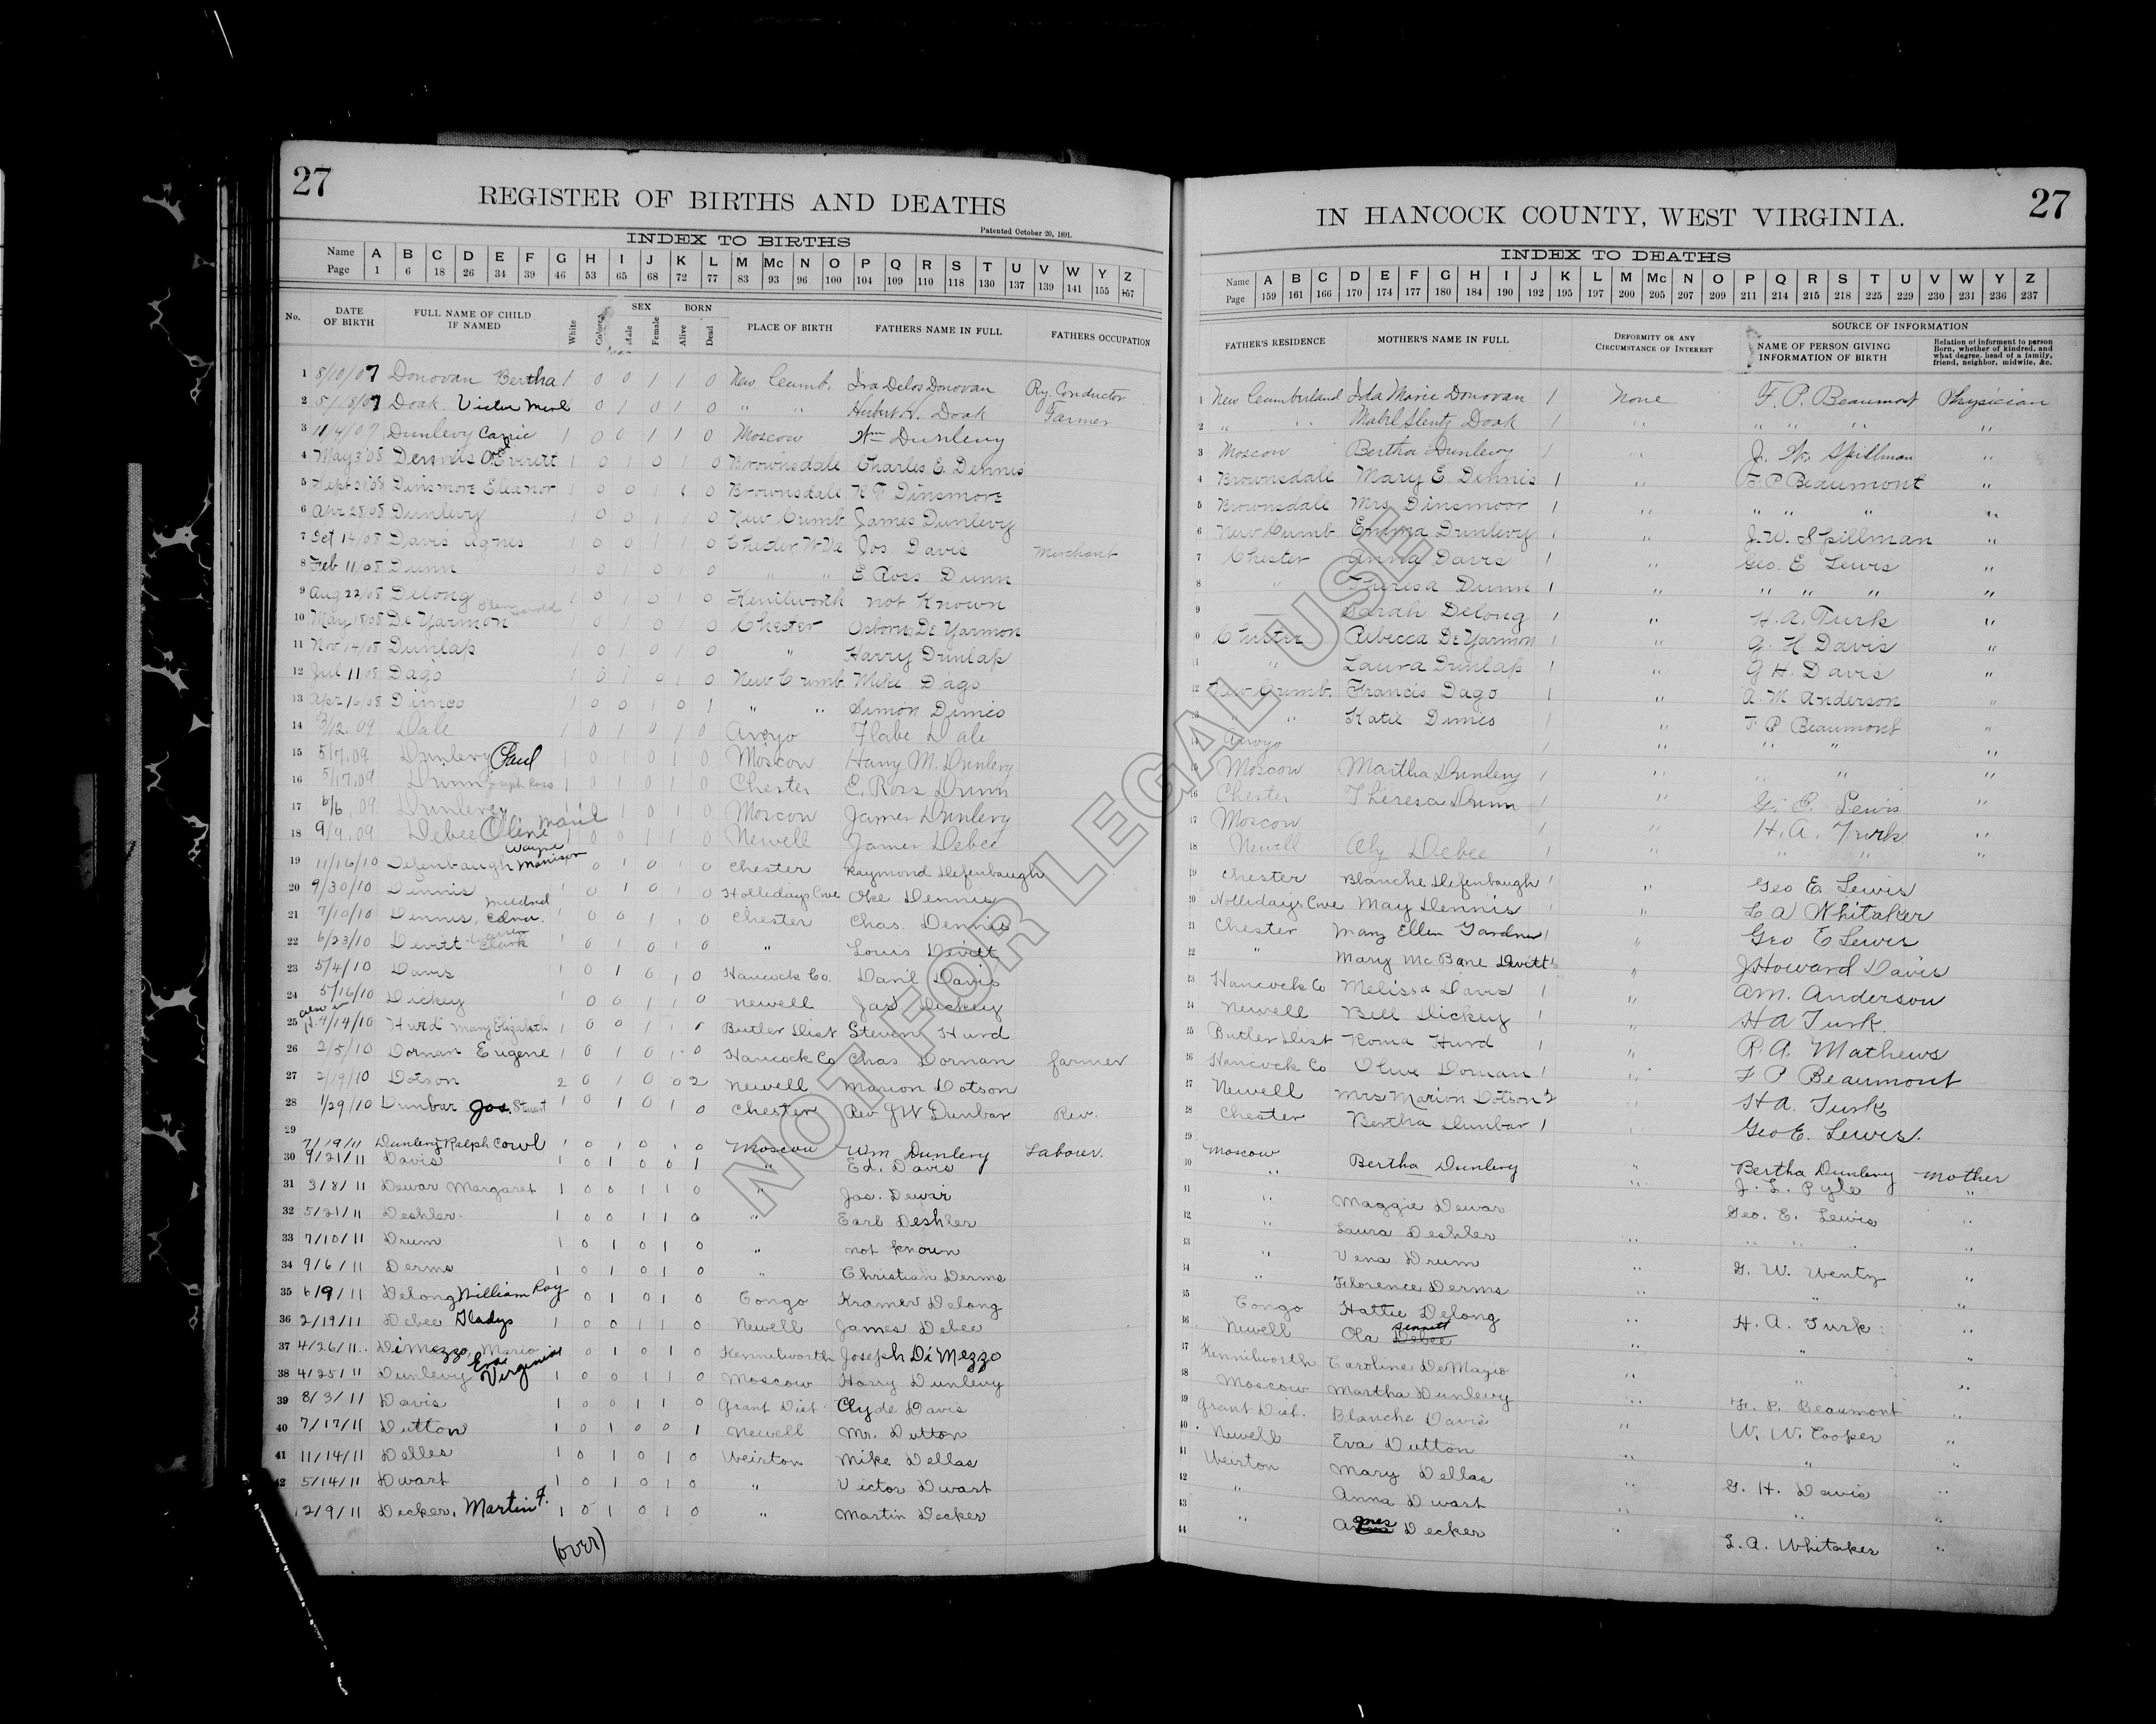 27
REGISTER OF BIRTHS AND DEATHS
Patented October 20, 1891.
INDEX TO BIRTHS
Name A B C D E F G H I J K L M Mc N O P Q R S T U V W Y Z
Page 1 6 18 26 34 39 46 53 65 68 72 77 83 93 96 100 104 109 110 118 130 137 139 141 155 157
No. DATE OF BIRTH FULL NAME OF CHILD IF NAMED White Colored SEX Male Female BORN Alive Dead PLACE OF BIRTH FATHERS NAME IN FULL FATHERS OCCUPATION
1 8/10/07 Donovan Bertha 1 0 0 1 1 0 New Cumb. Ira Delos Donovan Ry. Conductor
2 5/18/07 Doak Victor Merl 0 1 0 1 0 " " Herbert A. Doak Farmer
3 11/4/07 Dunlevy Carrie 1 0 0 1 1 0 Moscow Wm Dunlevy
4 May 3 '08 Dennis Everett 1 0 1 0 1 0 Brownsdale Charles E. Dennis
5 Sept 21 '08 Dinsmore Eleanor 1 0 0 1 1 0 Brownsdale R F Dinsmore
6 Apr 28/08 Dunlevy 1 0 0 1 0 New Cumb James Dunlevy
7 Oct 14/08 Davis Agnes 1 0 0 1 1 0 Chester, W.Va Jos Davis Merchant
8 Feb 11/08 Dunn 1 0 1 0 1 0 " " E Ross Dunn
9 Aug 22/08 Delong 1 0 1 0 1 0 Kenilworth not Known
10 May 18/08 De Yarmon Harold 1 0 1 0 1 0 Chester Osborne De Yarmon
11 Nov 14/08 Dunlap 1 0 1 0 1 0 " Harry Dunlap
12 Jul 11 08 Dago 1 0 1 0 1 0 New Cumb Mike Dago
13 Apr 16/08 Dimco 1 0 0 1 0 1 " " Simon Dimco
14 3/12.09 Dale 1 0 1 0 1 0 Arroyo Flabe Dale
15 5/7.09 Dunlevy Paul 1 0 1 0 1 0 Moscow Harry M. Dunlevy
16 5/17.09 Dunn Joseph Ross 1 0 1 0 1 0 Chester E. Ross Dunn
17 6/6.09 Dunlevy 1 1 1 0 1 0 Moscow James Dunlevy
18 9/9.09 Debee Oline Marie 1 0 0 1 1 0 Newell James Debee
19 11/16/10 Defenbaugh Wayne Morrison 0 1 0 1 0 Chester Raymond Defenbaugh
20 9/30/10 Dennis 1 0 1 0 1 0 Hollidays Cove Oke Dennis
21 7/10/10 Dennis, Mildred Edna. 1 0 0 1 1 0 Chester Chas. Dennis
22 6/23/10 Devitt Warren Clark 1 0 1 0 1 0 " Louis Devitt
23 5/4/10 Davis 1 0 1 0 1 0 Hancock Co. Dan'l Davis
24 5/16/10 Dickey 1 0 0 1 1 0 Newell Jas Dickey
25 4/14/10 Hurd Mary Elizabeth 1 0 0 1 1 0 Butler Dist Steven Hurd
26 2/5/10 Dornan Eugene 1 0 1 0 1 0 Hancock Co Chas Dornan farmer
27 2/19/10 Dotson 2 0 1 0 0 2 Newell Marion Dotson
28 1/29/10 Dunbar Jos. Stewart 1 0 1 0 1 0 Chester Rev J W Dunbar Rev.
29 7/19/11 Dunlevy Ralph Cowl 1 0 1 0 1 0 Moscow Wm Dunlevy Labour.
30 9/21/11 Davis 1 0 1 0 0 1 " Ed. Davis
31 3/8/11 Dewar Margaret 1 0 0 1 1 0 " Jas. Dewar
32 5/21/11 Deshler. 1 0 0 1 1 0 " Earl Deshler
33 7/10/11 Drum 1 0 1 0 1 0 " not known
34 9/6/11 Derms 1 0 1 0 1 0 " Christian Derms
35 6/9/11 Delong William Ray 0 1 0 1 0 Congo Kramer Delong
36 2/19/11 Debee Gladys 1 0 0 1 1 0 Newell James Debee
37 4/26/11. DiMezzo, Mario 0 1 0 1 0 Kennilworth Joseph DiMezzo
38 4/25/11 Dunlevy Eva Virginia 1 0 0 1 1 0 Moscow Harry Dunlevy
39 8/3/11 Davis 1 0 0 1 1 0 Grant Dist Clyde Davis
40 7/17/11 Dutton 1 0 1 0 0 1 Newell Mr. Dutton
41 11/14/11 Delles 1 0 1 0 1 0 Weirton Mike Dellas
42 5/14/11 Dwart 1 0 1 0 1 0 " Victor Dwart
12/9/11 Decker, Martin F. 1 0 1 0 1 0 " Martin Decker
(over)
27
IN HANCOCK COUNTY, WEST VIRGINIA.
INDEX TO DEATHS
Name A B C D E F G H I J K L M Mc N O P Q R S T U V W Y Z
Page 159 161 166 170 174 177 180 184 190 192 195 197 200 205 207 209 211 214 215 218 225 229 230 231 236 237
FATHER'S RESIDENCE MOTHER'S NAME IN FULL DEFORMITY OR ANY CIRCUMSTANCE OF INTEREST SOURCE OF INFORMATION NAME OF PERSON GIVING INFORMATION OF BIRTH Relation of informent to person Born, whether of kindred, and what degree, head of a family, friend, neighbor, midwife, &c.
1 New Cumberland Ida Marie Donovan 1 None F. P. Beaumont Physician
2 " " Mabel Slentz Doak 1 " " " " " "
3 Moscow Bertha Dunlevy 1 " J. W. Spillman "
4 Brownsdale Mary E. Dennis 1 " F. P Beaumont "
5 Brownsdale Mrs Dinsmoor 1 " " " " "
6 New Cumb Emma Dunlevy 1 " J. W. Spillman "
7 Chester Anna Davis 1 " Geo. E Lewis "
8 " Theresa Dunn 1 " " " " "
9 Sarah Delong 1 " H. A. Turk "
10 Chester Rebecca De Yarmon 1 " G. H Davis "
11 " Laura Dunlap 1 " G H. Davis "
12 New Cumb. Francis Dago 1 " A. M Anderson "
13 " " Katie Dimes 1 " F. P Beaumont "
14 Arroyo 1 " " " "
15 Moscow Martha Dunlevy 1 " " " "
16 Chester Theresa Dunn 1 " G. E. Lewis "
17 Moscow 1 " H. A. Turk "
18 Newell Debee 1 " " " "
19 Chester Blanche Defenbaugh 1 " Geo E. Lewis
20 Hollidays Cove May Dennis " L A Whitaker
21 Chester Mary Ellen Gardner 1 " Geo E Lewis
22 " Mary Mc Bane Devitt 1 J Howard Davis
23 Hancock Co Melissa Davis 1 " A M. Anderson
24 Newell Bell Dickey 1 " H A Turk.
25 Butler Dist Roma Hurd 1 " R. A. Mathews
26 Hancock Co Olive Dornan 1 " F P Beaumont
27 Newell Mrs Marion Dotson 2 H A. Turk
28 Chester Bertha Dunbar 1 " Geo E. Lewis.
29 Moscow Bertha Dunlevy " Bertha Dunlevy Mother
30 " " J. L. Pyle "
31 " Maggie Dewar Geo. E. Lewis "
32 " Laura Deshler " " " "
33 " Vena Drum " G. W. Wentz "
34 " Florence Derms " " "
35 Congo Hattie Delong " H. A. Turk "
36 Newell Ola Sennett Debee " "
37 Kennilworth Caroline DeMazio "
38 Moscow Martha Dunlevy F. P. Beaumont "
39 Grant Dist. Blanche Davis " W. W. Cooper "
40 Newell Eva Dutton " "
41 Weirton Mary Dellas " G. H. Davis "
42 " Anna Dwart " " "
43 " Agnes Decker " L. A. Whitaker "
44
NOT FOR LEGAL USE